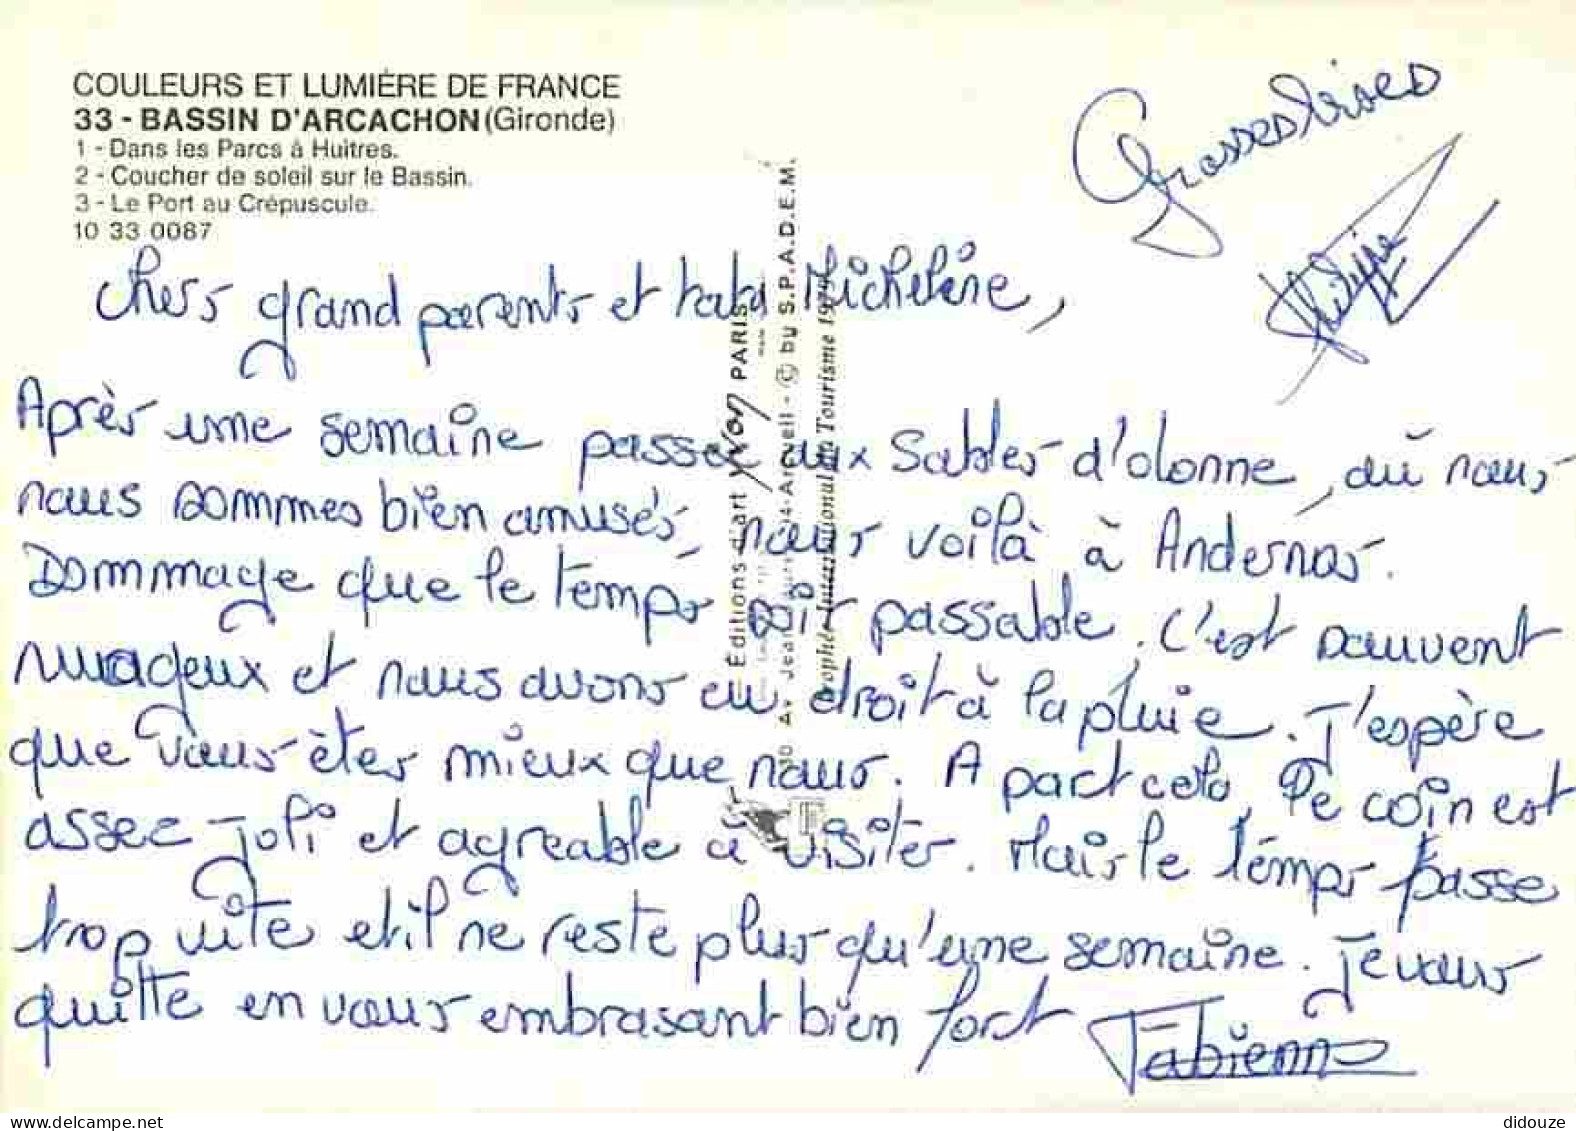 COULEURS ET LUMIÈRE DE FRANCE
33 - BASSIN D'ARCACHON (Gironde)
1 - Dans les Parcs à Huitres.
2 - Coucher de soleil sur le Bassin.
3 - Le Port au Crépuscule.
10 33 0087
Grosses bises
Philippe
Chers grand parents et tata Micheline,
Après une semaine passée aux Sables d'olonne, où nous
nous sommes bien amusés, nous voilà à Andernos.
Dommage que le temps soit passable. C'est souvent
nuageux et nous avons eu droit à la pluie. J'espère
que vous êtes mieux que nous. A part cela, le coin est
assec joli et agreable à visiter. Mais le temps passe
trop vite et il ne reste plus qu'une semaine. Je vous
quitte en vous embrasant bien fort
Fabienne
Éditions d'art YVON PARIS
30 Av Jean Arcueil - © by S.P.A.D.E.M.
Trophée International du Tourisme 1979
delcampe.net
didouze